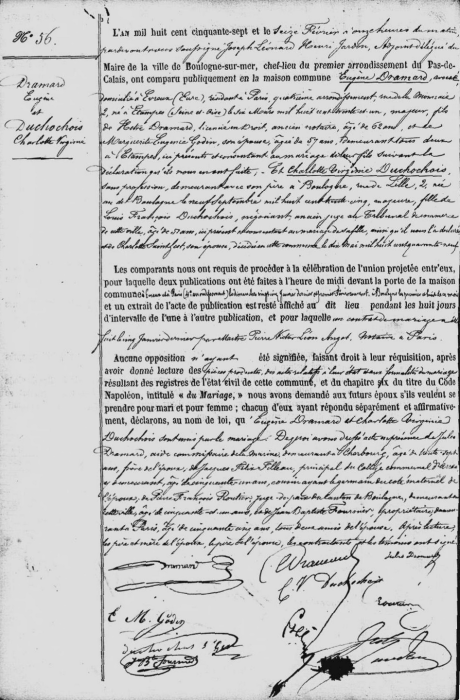 N.º 36.
Dramard
Eugène
et
Duchochois
Charlotte Virginie
L'AN mil huit cent cinquante-sept et le Seize Février à onze heures du matin,
par devant nous soussigné Joseph Léonard Henri Jardon, Adjoint délégué du
Maire de la ville de Boulogne-sur-mer, chef-lieu du premier arrondissement du Pas-de-
Calais, ont comparu publiquement en la maison commune Eugène Dramard, avocat
domicilié à Evreux (Eure), résidant à Paris, quatrième arrondissement, rue de la Monnaie
2, né à Etampes (Seine et Oise) le Six Mars mil huit cent trente et un, majeur, fils
de Dramard, licencié en Droit, ancien notaire, âgé de ans, et de
Marguerite Eugénie Godin, son épouse, âgée de 57 ans, demeurant tous deux
à Etampes, ici présents et consentant au mariage de leur fils suivant la
déclaration qu'ils nous ont faite. Et Charlotte Virginie Duchochois,
sans profession, demeurant avec son père à Boulogne, rue de Lille, 2, née
à Boulogne le neuf Septembre mil huit cent trente cinq, majeure, fille de
Louis François Duchochois, négociant, ancien juge au Tribunal de commerce
de cette ville, âgé de 57 ans, ici présent et consentant au mariage de sa fille, ainsi qu'il nous l'a déclaré
et de Charlotte son épouse, décédée en cette commune le dix Mai mil huit cent quarante neuf.
Les comparants nous ont requis de procéder à la célébration de l'union projetée entr'eux,
pour laquelle deux publications ont été faites à l'heure de midi devant la porte de la maison
commune
et un extrait de l'acte de publication est resté affiché au dit lieu pendant les huit jours
d'intervalle de l'une à l'autre publication, et pour laquelle un contrat de mariage a été
fait le cinq Janvier dernier par maître Pierre Victor Léon Angot, Notaire à Paris.
Aucune opposition n'ayant été signifiée, faisant droit à leur réquisition, après
avoir donné lecture des pièces produites, des actes relatifs à leur état aux formalités du mariage
résultant des registres de l'état civil de cette commune, et du chapitre six du titre du Code
Napoléon, intitulé « du Mariage, » nous avons demandé aux futurs époux s'ils veulent se
prendre pour mari et pour femme ; chacun d'eux ayant répondu séparément et affirmative-
ment, déclarons, au nom de loi, qu'Eugène Dramard et Charlotte Virginie
Duchochois sont unis par le mariage. De quoi avons dressé acte en présence de Jules
Dramard, aide commissaire de la marine, demeurant à Cherbourg, âgé de trente-sept
ans, frère de l'époux, de Jacques Félix Filleau, principal du Collège communal d'Etampes
y demeurant, âgé de cinquante un ans, cousin ayant le germain du coté maternel de
l'époux, de Pierre François Routier, juge de paix du canton de Boulogne, demeurant en
cette ville, âgé de cinquante et un ans, et de Jean Baptiste Fournier, propriétaire, demeu-
rant à Paris, âgé de cinquante cinq ans, tous deux amis de l'épouse. Après lecture,
les père et mère de l'époux, le père de l'épouse, les contractants et les témoins ont signé.
Dramard
Jules Dramard
C. V. Duchochois
Routier
E. M. Godin
J. Bte Fournier